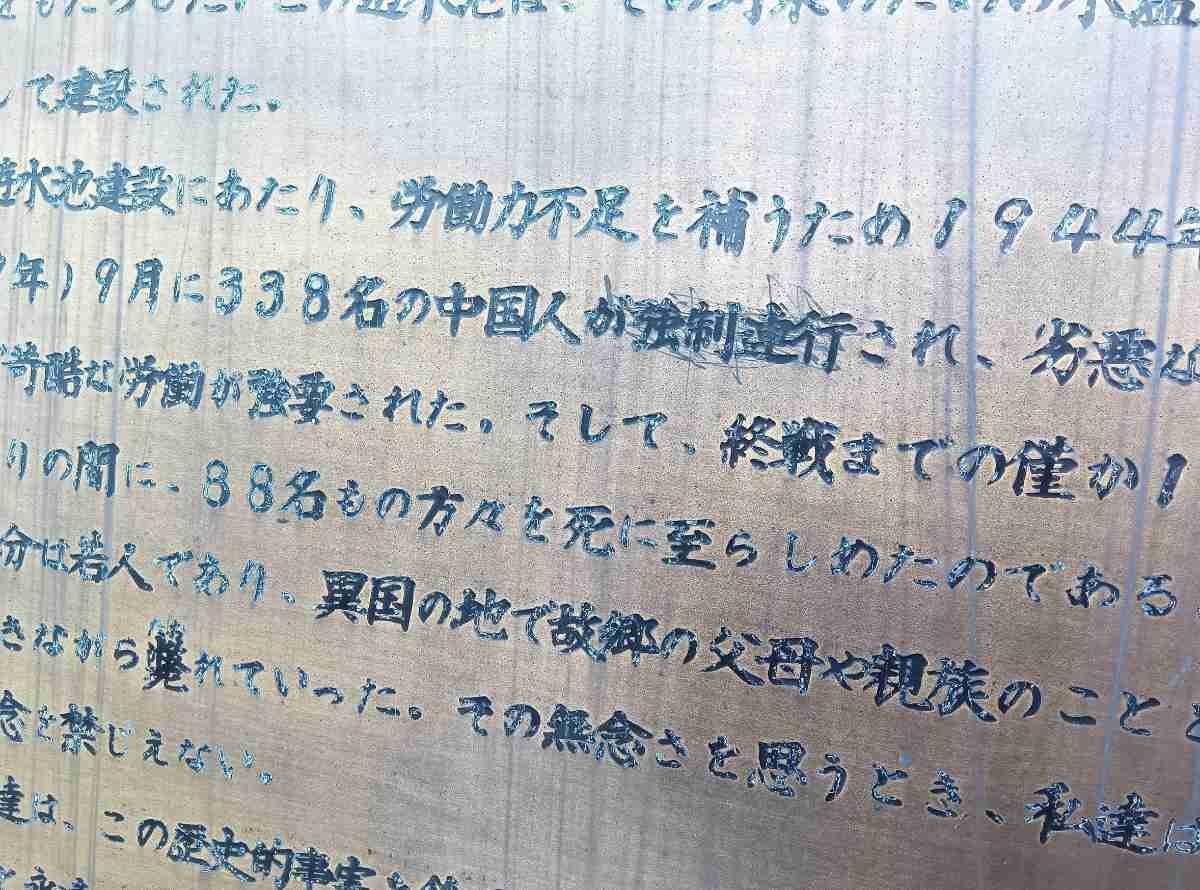 をもたらした。この遊水池は、その対策のための水
して建設された。
遊水池建設にあたり、労働力不足を補うため1944年
9年)9月に338名の中国人が強制連行され、劣悪な
苛酷な労働が強要された。そして、終戦までの僅か1
りの間に、88名もの方々を死に至らしめたのである
分は若人であり、異国の地で故郷の父母や親族のことを
きながら斃れていった。その無念さを思うとき、私達は
念を禁じえない。
達は、この歴史的事実を